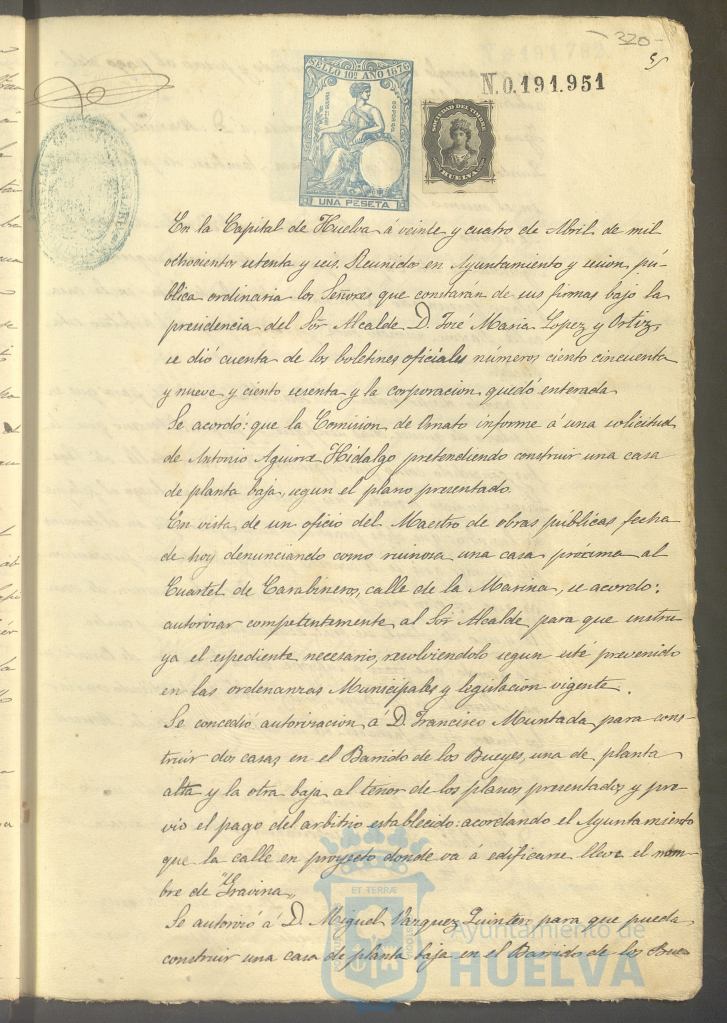 320
SELLO 10º AÑO 1876
N.0.191.951
SOCIEDAD DEL TIMBRE
HUELVA
UNA PESETA
En la Capital de Huelva á veinte y cuatro de Abril de mil
ochocientos setenta y seis. Reunidos en Ayuntamiento y sesion pú-
blica ordinaria los Señores que constarán de sus firmas bajo la
presidencia del Sor Alcalde D. José Maria Lopez y Ortiz,
se dió cuenta de los boletines oficiales números ciento cincuenta
y nueve y ciento sesenta y la corporacion quedó enterada
Se acordó: que la Comision de Ornato informe á una solicitud
de Antonio Aguirre Hidalgo pretendiendo construir una casa
de planta baja, segun el plano presentado.
En vista de un oficio del Maestro de obras públicas fecha
de hoy denunciando como ruinosa una casa procsima al
Cuartel de Carabineros, calle de la Marina, se acordo:
autorizar competentemente al Sor Alcalde para que instru-
ya el espediente necesario, resolviendolo segun esté prevenido
en las ordenanzas Municipales y legislacion vigente.
Se concedió autorizacion á D. Francisco Muntada para cons-
truir dos casas en el Barrido de los Bueyes, una de planta
alta y la otra baja al tenor de los planos presentados y pre-
vio el pago del arbitrio establecido: acordando el Ayuntamiento
que la calle en proyecto donde va á edificarse lleve el nom-
bre de "Gravina„
Se autorizó á D. Miguel Vazquez Quintero para que pueda
construir una casa de planta baja en el Barrido de los Bue-
ET TERRÆ
Ayuntamiento de
HUELVA